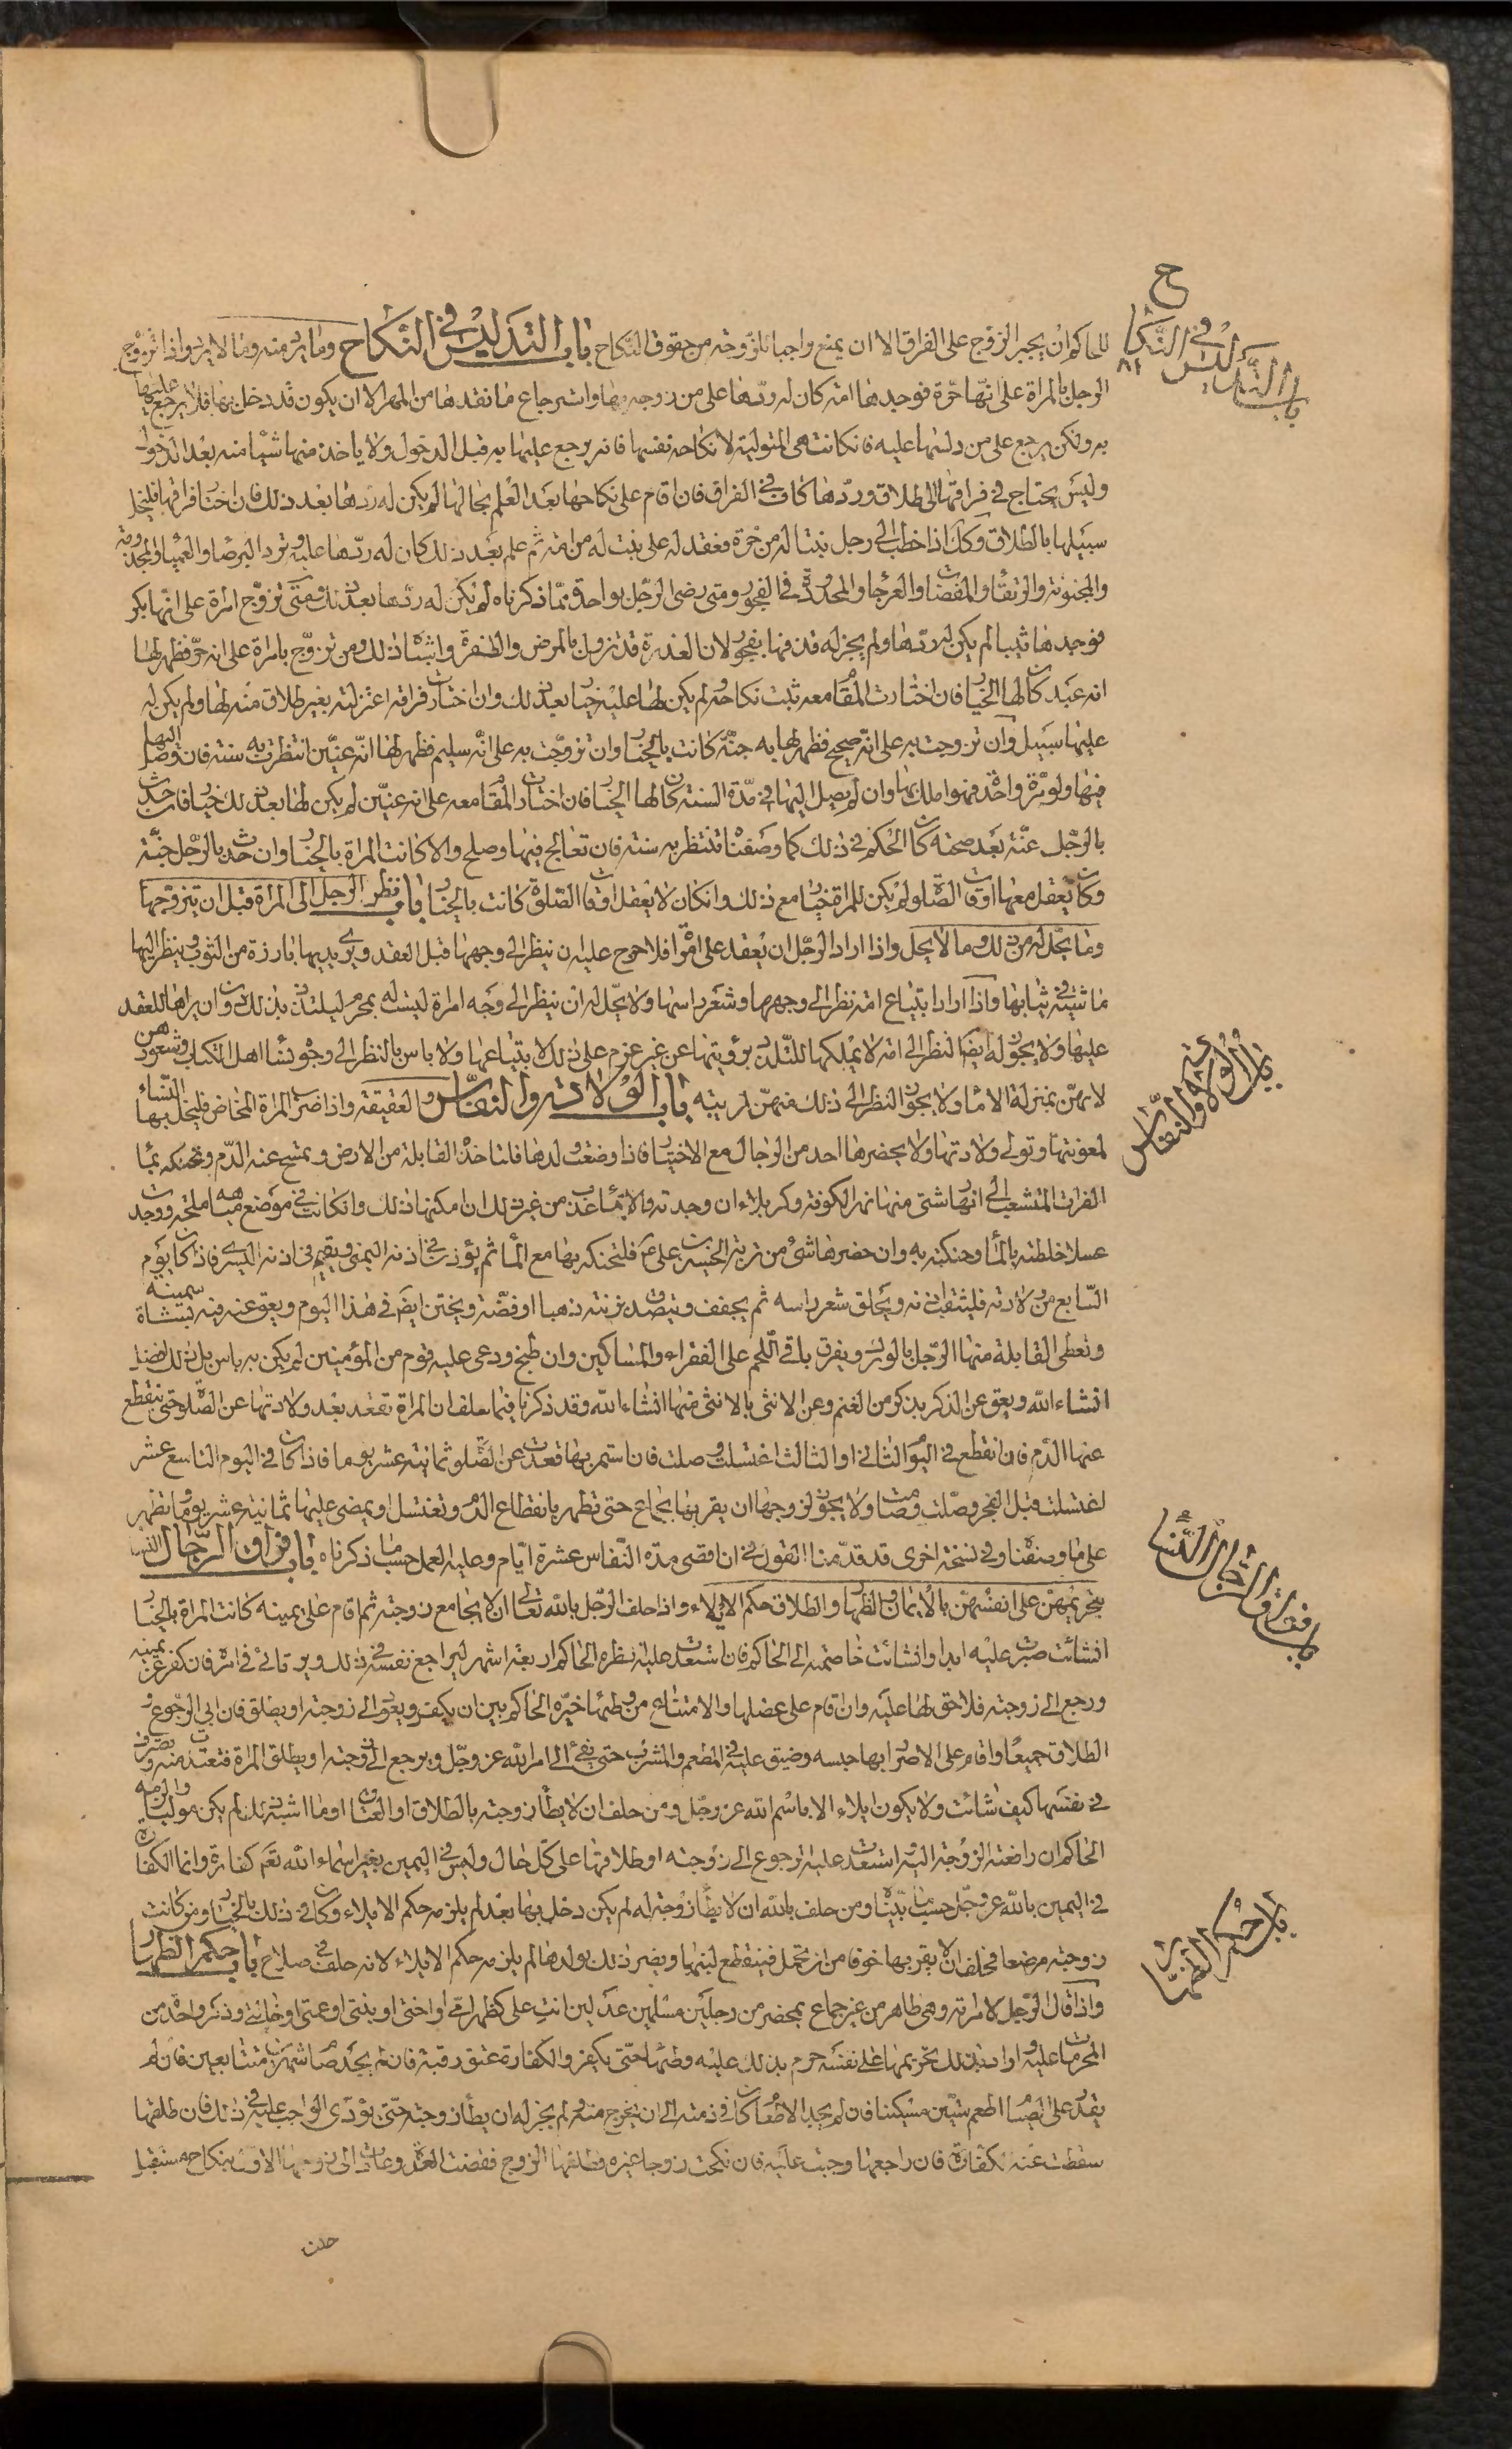 ح
باب التدليس في النكاح
٨١
للحاكم ان يجبر الزوج على الفراق الا ان يمنع واجبا للزوجة من حقوق النكاح باب التدليس في النكاح وما يرد منه وما لا يرد واذا تزوج
الرجل بالمراة على انها حرة فوجدها امة كان له ردها على من زوجه بها واسترجاع ما نقدها من المهر الا ان يكون قد دخل بها فلا يرجع عليها
به ولكن يرجع على من دلسها عليه فانكانت هي المتولية لانكاحه نفسها فانه يرجع عليها به قبل الدخول ولا ياخذ منها شيئا منه بعد الدخول
وليس يحتاج في فراقها الى طلاق وردها كاف في الفراق فان اقام على نكاحها بعد العلم بحالها لم يكن له ردها بعد ذلك فان اختار فراقها فليخل
سبيلها بالطلاق وكك اذا خطب الى رجل بنتا له من حرة فعقد له على بنت له من امة ثم علم بعد ذلك كان له ردها عليه وترد البرصاء والعمياء والمجذومة
والمجنونة والرتقاء والمفضاة والعرجاء والمحدودة في الفجور ومتى رضى الرجل بواحدة مما ذكرناه لم يكن له ردها بعد ذلك ومتى تزوج امراة على انها بكر
فوجدها ثيبا لم يكن له ردها ولم يجز له قذفها بفجور لان العذرة قد تزول بالمرض والطفرة واشباه ذلك ومن تزوج بامراة على انه حر فظهر لها
انه عبد كان لها الخيار فان اختارت المقام معه ثبت نكاحه ولم يكن لها عليه خيار بعد ذلك وان اختارت فراقه اعتزلته بغير طلاق منه لها ولم يكن له
عليها سبيل وان تزوجت به على انه صحيح فظهر لها به جنة كانت بالخيار وان تزوجت به على انه سليم فظهر لها انه عنين انتظرت به سنة فان وصل اليها
فيها ولو مرة واحدة فهو املك بها وان لم يصل اليها في مدة السنة كان لها الخيار فان اختارت المقام معه على انه عنين لم يكن لها بعد ذلك خيار فان حدث
بالرجل عنة بعد صحته كان الحكم في ذلك كما وصفناه تنتظر به سنة فان تعالج فيها وصلح والا كانت المراة بالخيار وان حدث بالرجل جنة
وكان يعقل معها اوقات الصلوة لم يكن للمراة خيار مع ذلك وانكان لا يعقل اوقات الصلوة كانت بالخيار باب نظر الرجل الى المراة قبل ان يتزوجها
وما يحل له من ذلك وما لا يحل واذا اراد الرجل ان يعقد على امراة فلا حرج عليه ان ينظر الى وجهها قبل العقد ويرى يديها بارزة من الثوب وينظر اليها
ماشية في ثيابها واذا اراد ابتياع امة نظر الى وجهها وشعر راسها ولا يحل له ان ينظر الى وجه امراة ليست له بمحرم ليتلذذ بذلك دون ان يراها للعقد
عليها ولا يجوز له ايضا النظر الى امة لا يملكها للتلذذ برؤيتها عن غير عزم على ذلك لابتياعها ولا باس بالنظر الى وجوه نساء اهل الكتاب وشعورهن
لانهن بمنزلة الاماء ولا يجوز النظر الى ذلك منهن لريبة باب الولادة والنفاس والعقيقة واذا ضرب المراة المخاض فليخل بها النساء
باب الولادة والنفاس
لمعونتها وتولى ولادتها ولا يحضرها احد من الرجال مع الاختيار فاذا وضعت ولدها فلتاخذه القابلة من الارض وتمسح عنه الدم وتحنكه بماء
الفرات المتشعب الى انهار شتى منها نهر الكوفة وكربلاء ان وجدته والا بماء عذب من غير ذلك ان امكنها ذلك وانكانت في موضع مياهه ملحة ووجدت
عسلا خلطته بالماء وحنكته به وان حضرها شئ من تربة الحسين بن علي ع فلتحنكه بها مع الماء ثم يؤذن في اذنه اليمنى ويقيم في اذنه اليسرى فاذا كان يوم
السابع من ولادته فليثقب اذنه ويحلق شعر راسه ثم يجفف ويتصدق بزنته ذهبا او فضة ويختن ايضا في هذا اليوم ويعق عنه فيه بشاة سمينة
وتعطى القابلة منها الرجل بالورك ويفرق باقي اللحم على الفقراء والمساكين وان طبخ ودعى عليه قوم من المؤمنين لم يكن به باس بل ذلك افضل
انشاء الله ويعق عن الذكر بذكر من الغنم وعن الانثى بالانثى منها انشاء الله وقد ذكرنا فيما سلف ان المراة تقعد بعد ولادتها عن الصلوة حتى ينقطع
عنها الدم فان انقطع في اليوم الثاني او الثالث اغتسلت وصلت فان استمر بها قعدت عن الصلوة ثمانية عشر يوما فاذا كان في اليوم التاسع عشر
اغتسلت قبل الفجر وصلت وصامت ولا يجوز لزوجها ان يقربها بجماع حتى تطهر بانقطاع الدم وتغتسل او يمضى عليها ثمانية عشر يوما وتطهر
على ما وصفناه وفي نسخة اخرى قد قدمنا القول في ان اقصى مدة النفاس عشرة ايام وعليه العمل حسب ما ذكرناه باب فراق الرجال النساء
باب فراق الرجال النساء
بتحريمهن على انفسهن بالايمان والظهار والطلاق حكم الايلاء واذا حلف الرجل بالله تعالى ان لا يجامع زوجته ثم اقام على يمينه كانت المراة بالخيار
انشائت صبرت عليه ابدا وانشائت خاصمته الى الحاكم فان استعدت عليه انظره الحاكم اربعة اشهر ليراجع نفسه في ذلك ويرتائى في امره فان كفر عن يمينه
ورجع الى زوجته فلا حق لها عليه وان اقام على عضلها والامتناع من وطئها خيره الحاكم بين ان يكفر ويعود الى زوجته او يطلق فان ابى الرجوع و
الطلاق جميعا واقام على الاضرار بها حبسه وضيق عليه في المطعم والمشرب حتى يفئ الى امر الله عز وجل ويرجع الى زوجته او يطلق المراة فتعتد منه وتصرف
في نفسها كيف شائت ولا يكون ايلاء الا باسم الله عز وجل ومن حلف ان لا يطأ زوجته بالطلاق او العتاق او ما اشبه ذلك لم يكن موليا والزمه
الحاكم ان رافعته الزوجة اليه او استعدت عليه الرجوع الى زوجته او طلاقها على كل حال وليس في اليمين بغير اسماء الله تعالى كفارة وانما الكفارة
في اليمين بالله عز وجل حسب ما بيناه ومن حلف بالله ان لا يطأ زوجة له لم يكن دخل بها بعد لم يلزمه حكم الايلاء وكان في ذلك بالخيار ومن كانت
زوجته مرضعا فحلف ان لا يقربها خوفا من ان تحمل فينقطع لبنها ويضر ذلك بولدها لم يلزمه حكم الايلاء لانه حلف في صلاح باب حكم الظهار
باب حكم الظهار
واذا قال الرجل لامراته وهي طاهر من غير جماع بمحضر من رجلين مسلمين عدلين انت على كظهر امى او اختى او بنتى او عمتى او خالتى وذكر واحدة من
المحرمات عليه واراد بذلك تحريمها على نفسه حرم بذلك عليه وطئها حتى يكفر والكفارة عتق رقبة فان لم يجد صام شهرين متتابعين فان لم
يقدر على الصيام اطعم ستين مسكينا فان لم يجد الاطعام كان في ذمته الى ان يخرج منه ولم يجز له ان يطأ زوجته حتى يؤدى الواجب عليه في ذلك فان طلقها
سقطت عنه الكفارة فان راجعها وجبت عليه فان نكحت زوجا غيره وطلقها الزوج فقضت العدة وعادت الى زوجها الاول بنكاح مستقبل